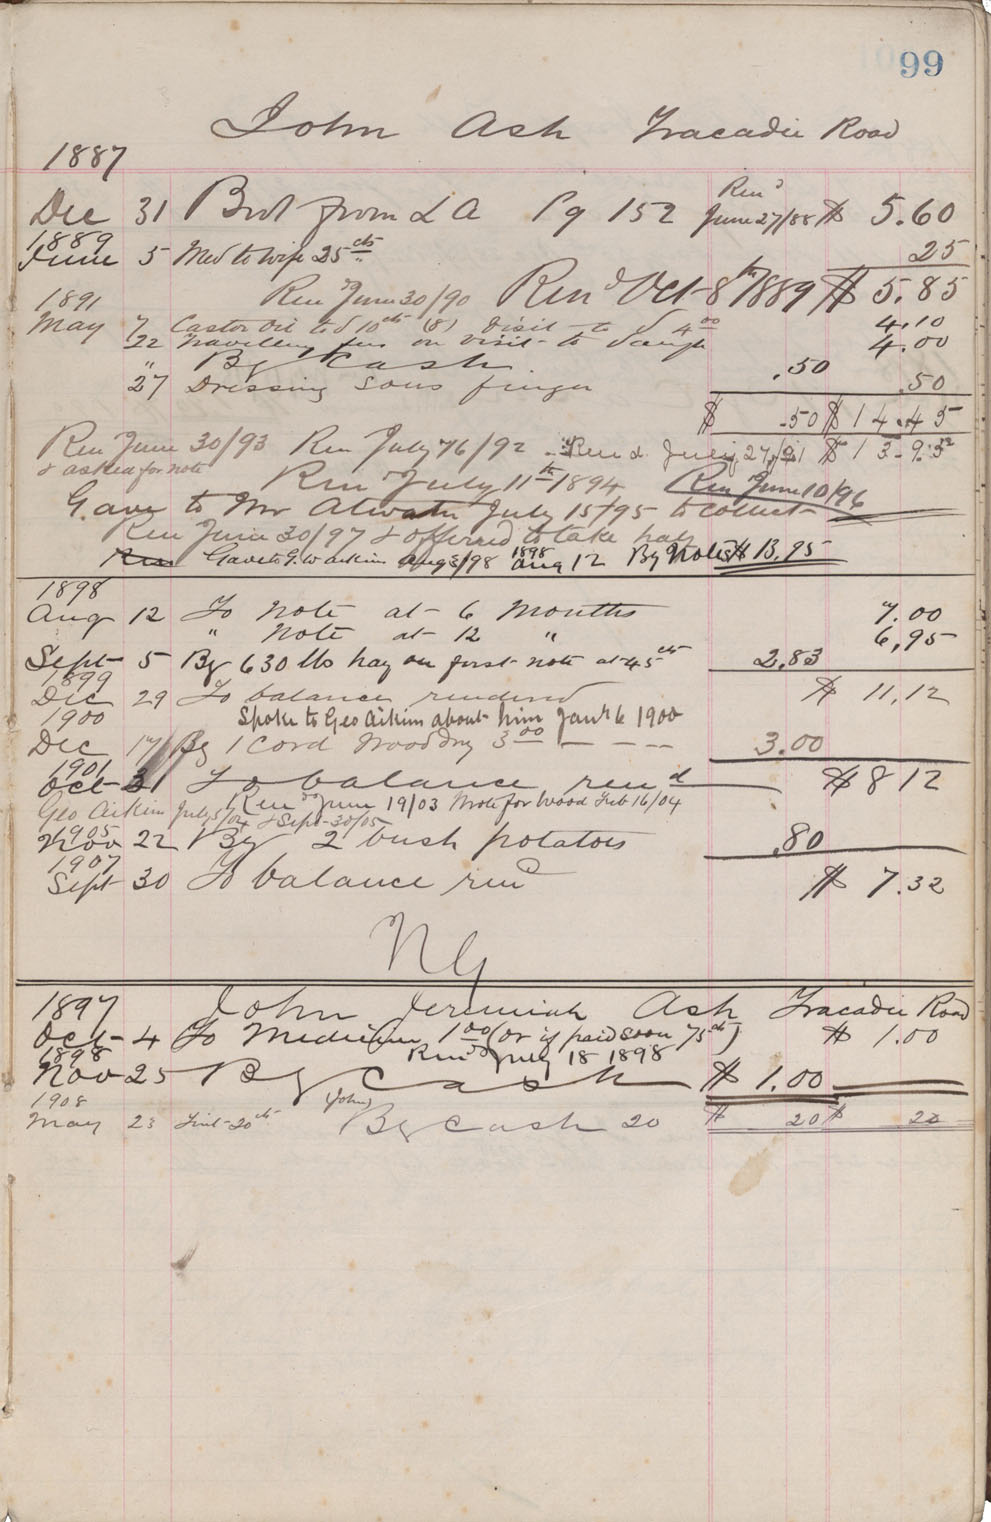 99
John Ash Tracadie Road
1887
Dec 31 Brot from LA Pg 152 Ren'd June 27/88 $ 5.60
1889
June 5 Med to wife 25 cts 25
Ren'd June 30/90 Ren'd Oct 8th 1889 $ 5.85
1891
May 7 Castor Oil to d 10 cts (8) Visit to d 4.00 4.10
22 Travelling fees on visit to daugh 4.00
" By Cash .50
27 Dressing sons finger .50
$ .50 $ 14.45
Ren June 30/93 Ren July 76/92 Ren'd July 27/91 $ 13.95
& asked for note
Ren'd July 11th 1894 Ren June 10/96
Gave to Mr Atwater July 15/95 to collect
Ren June 30/97 & offered to take hay
Gave to G. W. Aitkin Aug 3/98 1898 Aug 12 By Notes $ 13.95
1898
Aug 12 To note at 6 months 7.00
" Note at 12 " 6.95
Sept 5 By 630 lbs hay on first note at 45 cts 2.83
1899
Dec 29 To balance rendered $ 11.12
1900 Spoke to Geo Aitkin about him Jany 16 1900
Dec 17 By 1 Cord Wood Dry 3.00 — — — 3.00
1901
Oct 31 To balance ren'd $ 8 12
Ren'd June 19/03 Wrote for Wood Feb 16/04
Geo Aitkin July 5/04 & Sept 30/05
1905
Nov 22 By 2 bush potatoes .80
1907
Sept 30 To balance ren'd $ 7.32
NG
1897 John Jeremiah Ash Tracadie Road
Oct 4 To Medicine 1.00 (or if paid soon 75 cts) $ 1.00
1898 Ren'd July 18 1898
Nov 25 By Cash $ 1.00
1908 (John)
May 23 Lint 20 cts By Cash 20 $ 20 $ 20